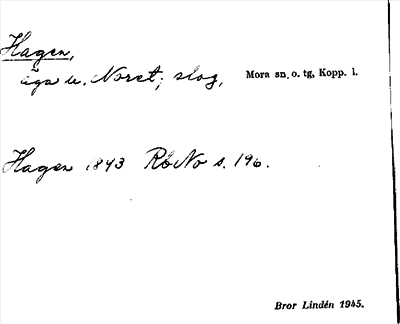 Hagen,
äga u. Noret; slog, Mora sn. o. tg, Kopp. l.
Hagen 1843 RöNo s. 196.
Bror Lindén 1945.